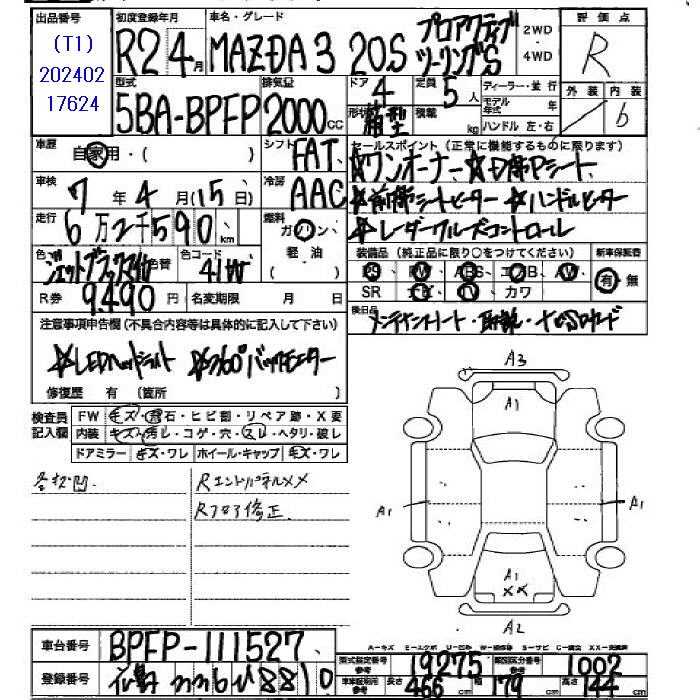 出品番号 初度登録年月 車名・グレード 評価点
(T1)
202402
17624
R2 4月 MAZDA3 20S プロアクティブ
ツーリングS
2WD
・
4WD
R
型式 排気量 ドア 定員 ディーラー・並行 外装 内装
5BA-BPFP 2000cc 4 5人 モデル年式 年
形状 箱型 積載 kg ハンドル 左・右
b
車歴 自家用・( ) シフト FAT セールスポイント (正常に機能するものに限ります)
☆ワンオーナー、☆D席Pシート、
車検 7年4月(15日) 冷房 AAC
☆前席シートヒーター ☆ハンドルヒーター
走行 6万2千590km 燃料 ガソリン、
☆レーダークルーズコントロール
軽・油
( )
色 ジェットブラックM 色替 色コード 41W
装備品 (純正品に限り○をつけてください) 新車保証書
PS、PW、ABS、エアB、AW、 有・無
SR ナビ・TV カワ
R券 9490円 名変期限 月 日
後日品 メンテナンスノート・取説・ナビSDカード
注意事項申告欄(不具合内容等は具体的に記入して下さい)
☆LEDヘッドライト ☆360°バックモニター
修復歴 有 (箇所 )
検査員
記入欄
FW キズ・飛石・ヒビ割・リペア跡・X要
内装 キズ・汚レ・コゲ・穴・スレ・ヘタリ・破レ
ドアミラー キズ・ワレ ホイール・キャップ キズ・ワレ
各所凹. RエンドパネルXX
Rフロア修正.
A3
A1
A1
A1
A1
XX
A2
A-キズ E-エクボ U-凹み W-補修跡 S-サビ C-腐食 XX-交換済
車台番号 BPFP-111527
登録番号
型式指定番号 参考 19275 類別区分番号 参考 1002
車体寸法 参考 長さ 466cm 幅 179cm 高さ 144cm